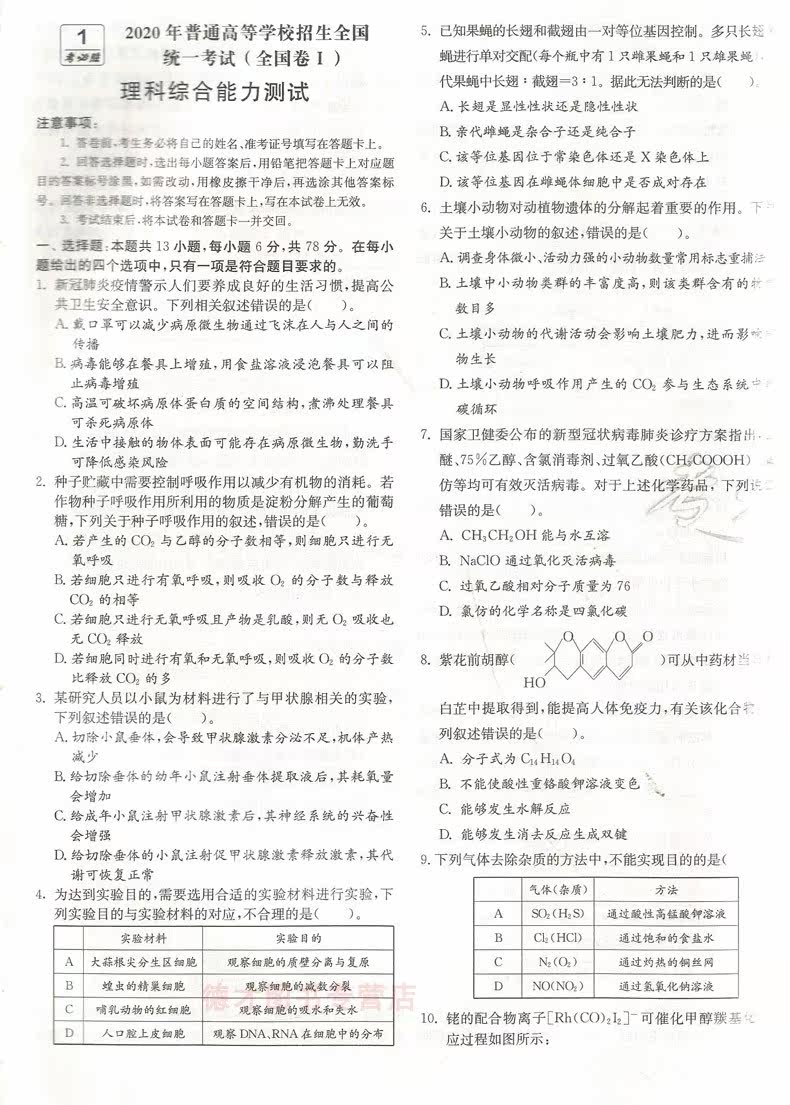 1
考必胜
2020年普通高等学校招生全国
统一考试(全国卷Ⅰ)
理科综合能力测试
注意事项:
1. 答卷前,考生务必将自己的姓名、准考证号填写在答题卡上。
2. 回答选择题时,选出每小题答案后,用铅笔把答题卡上对应题
目的答案标号涂黑,如需改动,用橡皮擦干净后,再选涂其他答案标
号。回答非选择题时,将答案写在答题卡上,写在本试卷上无效。
3. 考试结束后,将本试卷和答题卡一并交回。
一、选择题:本题共13小题,每小题6分,共78分。在每小
题给出的四个选项中,只有一项是符合题目要求的。
1. 新冠肺炎疫情警示人们要养成良好的生活习惯,提高公
共卫生安全意识。下列相关叙述错误的是( )。
A. 戴口罩可以减少病原微生物通过飞沫在人与人之间的
传播
B. 病毒能够在餐具上增殖,用食盐溶液浸泡餐具可以阻
止病毒增殖
C. 高温可破坏病原体蛋白质的空间结构,煮沸处理餐具
可杀死病原体
D. 生活中接触的物体表面可能存在病原微生物,勤洗手
可降低感染风险
2. 种子贮藏中需要控制呼吸作用以减少有机物的消耗。若
作物种子呼吸作用所利用的物质是淀粉分解产生的葡萄
糖,下列关于种子呼吸作用的叙述,错误的是( )。
A. 若产生的CO₂与乙醇的分子数相等,则细胞只进行无
氧呼吸
B. 若细胞只进行有氧呼吸,则吸收O₂的分子数与释放
CO₂的相等
C. 若细胞只进行无氧呼吸且产物是乳酸,则无O₂吸收也
无CO₂释放
D. 若细胞同时进行有氧和无氧呼吸,则吸收O₂的分子数
比释放CO₂的多
3. 某研究人员以小鼠为材料进行了与甲状腺相关的实验,
下列叙述错误的是( )。
A. 切除小鼠垂体,会导致甲状腺激素分泌不足,机体产热
减少
B. 给切除垂体的幼年小鼠注射垂体提取液后,其耗氧量
会增加
C. 给成年小鼠注射甲状腺激素后,其神经系统的兴奋性
会增强
D. 给切除垂体的小鼠注射促甲状腺激素释放激素,其代
谢可恢复正常
4. 为达到实验目的,需要选用合适的实验材料进行实验,下
列实验目的与实验材料的对应,不合理的是( )。
实验材料 实验目的
A 大蒜根尖分生区细胞 观察细胞的质壁分离与复原
B 蝗虫的精巢细胞 观察细胞的减数分裂
C 哺乳动物的红细胞 观察细胞的吸水和失水
D 人口腔上皮细胞 观察DNA、RNA在细胞中的分布
德才图书专营店
5. 已知果蝇的长翅和截翅由一对等位基因控制。多只长翅
蝇进行单对交配(每个瓶中有1只雌果蝇和1只雄果蝇
代果蝇中长翅∶截翅=3∶1。据此无法判断的是( )。
A. 长翅是显性性状还是隐性性状
B. 亲代雌蝇是杂合子还是纯合子
C. 该等位基因位于常染色体还是X染色体上
D. 该等位基因在雌蝇体细胞中是否成对存在
6. 土壤小动物对动植物遗体的分解起着重要的作用。下
关于土壤小动物的叙述,错误的是( )。
A. 调查身体微小、活动力强的小动物数量常用标志重捕法
B. 土壤中小动物类群的丰富度高,则该类群含有的物
数目多
C. 土壤小动物的代谢活动会影响土壤肥力,进而影响
物生长
D. 土壤小动物呼吸作用产生的CO₂参与生态系统中
碳循环
7. 国家卫健委公布的新型冠状病毒肺炎诊疗方案指出,
醚、75%乙醇、含氯消毒剂、过氧乙酸(CH₃COOOH)
仿等均可有效灭活病毒。对于上述化学药品,下列
错误的是( )。
A. CH₃CH₂OH能与水互溶
B. NaClO通过氧化灭活病毒
C. 过氧乙酸相对分子质量为76
D. 氯仿的化学名称是四氯化碳
8. 紫花前胡醇( HO O O O )可从中药材当
白芷中提取得到,能提高人体免疫力,有关该化合物
列叙述错误的是( )。
A. 分子式为C₁₄H₁₄O₄
B. 不能使酸性重铬酸钾溶液变色
C. 能够发生水解反应
D. 能够发生消去反应生成双键
9. 下列气体去除杂质的方法中,不能实现目的的是(
气体(杂质) 方法
A SO₂(H₂S) 通过酸性高锰酸钾溶液
B Cl₂(HCl) 通过饱和的食盐水
C N₂(O₂) 通过灼热的铜丝网
D NO(NO₂) 通过氢氧化钠溶液
10. 铑的配合物离子[Rh(CO)₂I₂]⁻可催化甲醇羰基化
应过程如图所示: